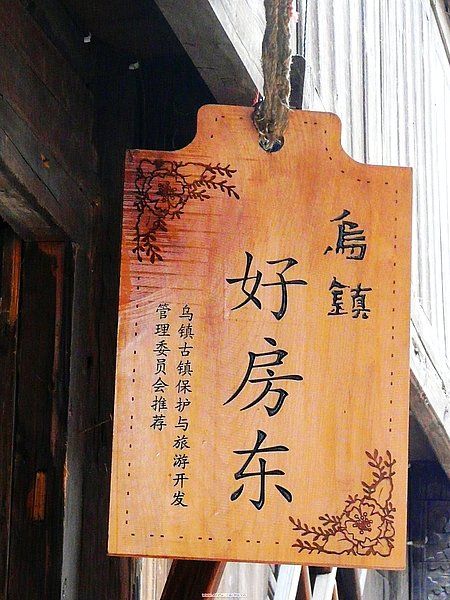 烏鎮
好房东
乌镇古镇保护与旅游开发
管理委员会推荐